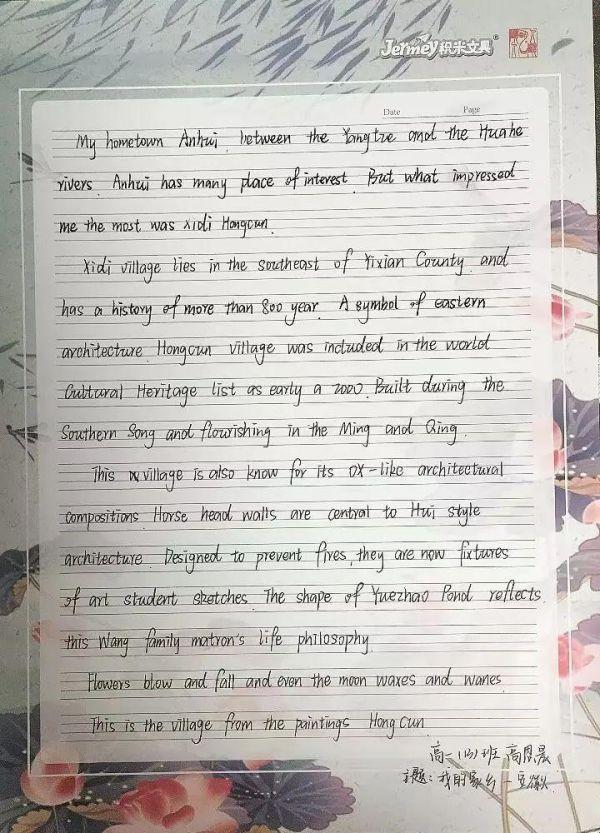 Jermey积米文具®
Date Page
My hometown Anhui, between the Yangtze and the Huaihe
rivers. Anhui has many place of interest. But what impressed
me the most was xidi Hongcun.
Xidi village lies in the southeast of Yixian County and
has a history of more than 800 year. A symbol of eastern
architecture Hongcun village was included in the world
Cultural Heritage list as early a 2000. Built during the
Southern Song and flourishing in the Ming and Qing.
This village is also know for its ox-like architectural
compositions. Horse head walls are central to Hui style
architecture. Designed to prevent fires, they are now fixtures
of art student sketches. The shape of Yuezhao Pond reflects
this Wang family matron's life philosophy.
Flowers blow and fall and even the moon waxes and wanes
This is the village from the paintings Hong Cun.
高一(13)班 高
主题:我的家乡-